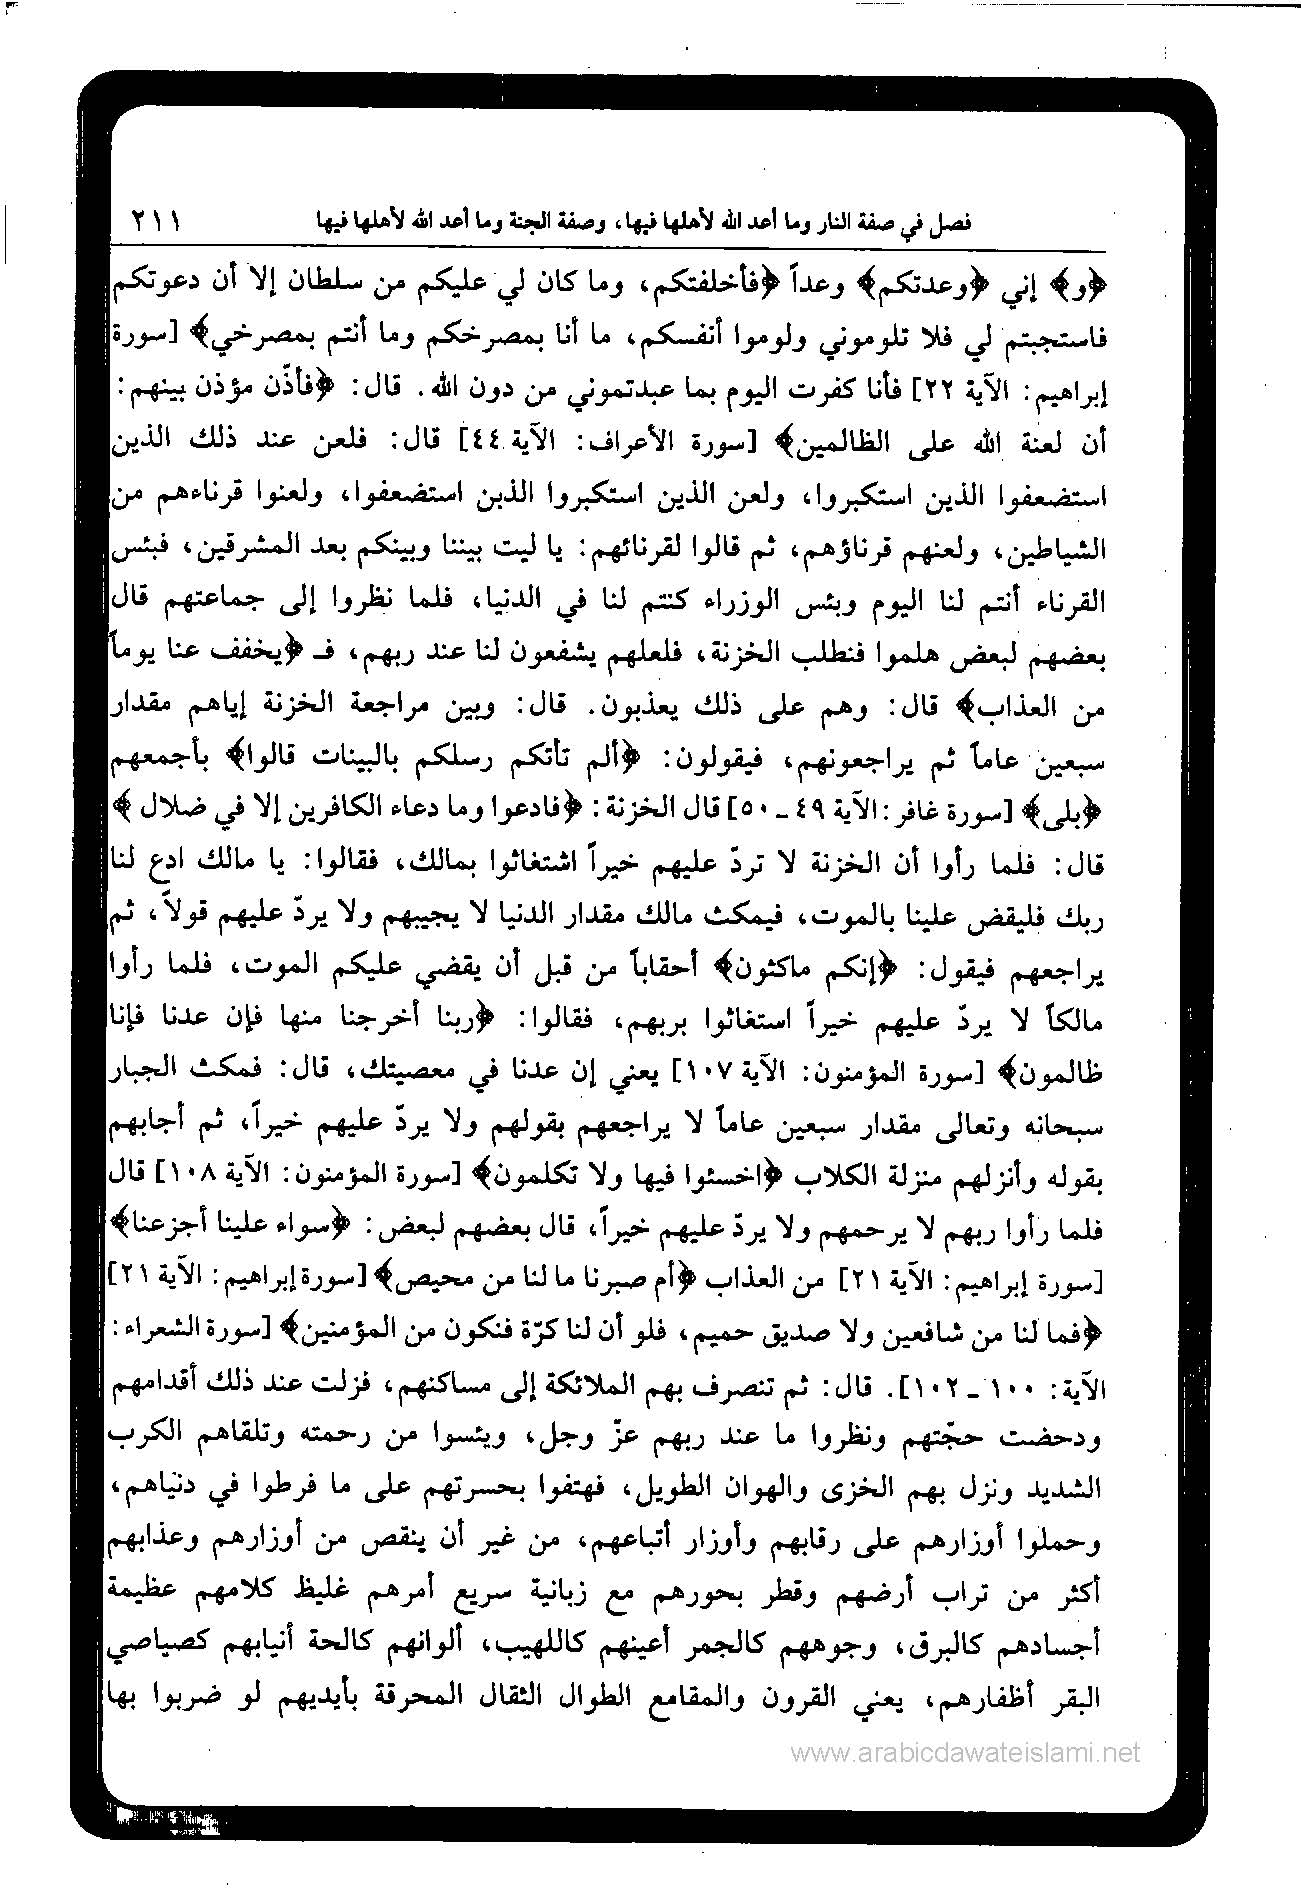 فصل في صفة النار وما أعد الله لأهلها فيها، وصفة الجنة وما أعد الله لأهلها فيها ٢١١
﴿و﴾ إني ﴿وعدتكم﴾ وعداً ﴿فأخلفتكم، وما كان لي عليكم من سلطان إلا أن دعوتكم
فاستجبتم لي فلا تلوموني ولوموا أنفسكم، ما أنا بمصرخكم وما أنتم بمصرخي﴾ [سورة
إبراهيم: الآية ٢٢] فأنا كفرت اليوم بما عبدتموني من دون الله. قال: ﴿فأذّن مؤذن بينهم:
أن لعنة الله على الظالمين﴾ [سورة الأعراف: الآية ٤٤] قال: فلعن عند ذلك الذين
استضعفوا الذين استكبروا، ولعن الذين استكبروا الذين استضعفوا، ولعنوا قرناءهم من
الشياطين، ولعنهم قرناؤهم، ثم قالوا لقرنائهم: يا ليت بيننا وبينكم بعد المشرقين، فبئس
القرناء أنتم لنا اليوم وبئس الوزراء كنتم لنا في الدنيا، فلما نظروا إلى جماعتهم قال
بعضهم لبعض هلموا فنطلب الخزنة، فلعلهم يشفعون لنا عند ربهم، فـ ﴿يخفف عنا يوماً
من العذاب﴾ قال: وهم على ذلك يعذبون. قال: وبين مراجعة الخزنة إياهم مقدار
سبعين عاماً ثم يراجعونهم، فيقولون: ﴿ألم تأتكم رسلكم بالبينات قالوا﴾ بأجمعهم
﴿بلى﴾ [سورة غافر: الآية ٤٩ ـ ٥٠] قال الخزنة: ﴿فادعوا وما دعاء الكافرين إلا في ضلال﴾
قال: فلما رأوا أن الخزنة لا تردّ عليهم خيراً اشتغاثوا بمالك، فقالوا: يا مالك ادع لنا
ربك فليقض علينا بالموت، فيمكث مالك مقدار الدنيا لا يجيبهم ولا يردّ عليهم قولاً، ثم
يراجعهم فيقول: ﴿إنكم ماكثون﴾ أحقاباً من قبل أن يقضي عليكم الموت، فلما رأوا
مالكاً لا يردّ عليهم خيراً استغاثوا بربهم، فقالوا: ﴿ربنا أخرجنا منها فإن عدنا فإنا
ظالمون﴾ [سورة المؤمنون: الآية ١٠٧] يعني إن عدنا في معصيتك، قال: فمكث الجبار
سبحانه وتعالى مقدار سبعين عاماً لا يراجعهم بقولهم ولا يردّ عليهم خيراً، ثم أجابهم
بقوله وأنزلهم منزلة الكلاب ﴿اخسئوا فيها ولا تكلمون﴾ [سورة المؤمنون: الآية ١٠٨] قال
فلما رأوا ربهم لا يرحمهم ولا يردّ عليهم خيراً، قال بعضهم لبعض: ﴿سواء علينا أجزعنا﴾
[سورة إبراهيم: الآية ٢١] من العذاب ﴿أم صبرنا ما لنا من محيص﴾ [سورة إبراهيم: الآية ٢١]
﴿فما لنا من شافعين ولا صديق حميم، فلو أن لنا كرّة فنكون من المؤمنين﴾ [سورة الشعراء:
الآية: ١٠٠ ـ ١٠٢]. قال: ثم تنصرف بهم الملائكة إلى مساكنهم، فزلت عند ذلك أقدامهم
ودحضت حجّتهم ونظروا ما عند ربهم عزّ وجل، ويئسوا من رحمته وتلقاهم الكرب
الشديد ونزل بهم الخزى والهوان الطويل، فهتفوا بحسرتهم على ما فرطوا في دنياهم،
وحملوا أوزارهم على رقابهم وأوزار أتباعهم، من غير أن ينقص من أوزارهم وعذابهم
أكثر من تراب أرضهم وقطر بحورهم مع زبانية سريع أمرهم غليظ كلامهم عظيمة
أجسادهم كالبرق، وجوههم كالجمر أعينهم كاللهيب، ألوانهم كالحة أنيابهم كصياصي
البقر أظفارهم، يعني القرون والمقامع الطوال الثقال المحرقة بأيديهم لو ضربوا بها
www.arabicdawateislami.net